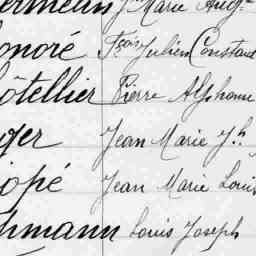 ermelin Jⁿ Marie Augᵗᵉ
onoré Fçois Julien Constant
ôtellier Pierre Alphonse
ger Jean Marie Jʰ
iopé Jean Marie Louis
hmann Louis Joseph